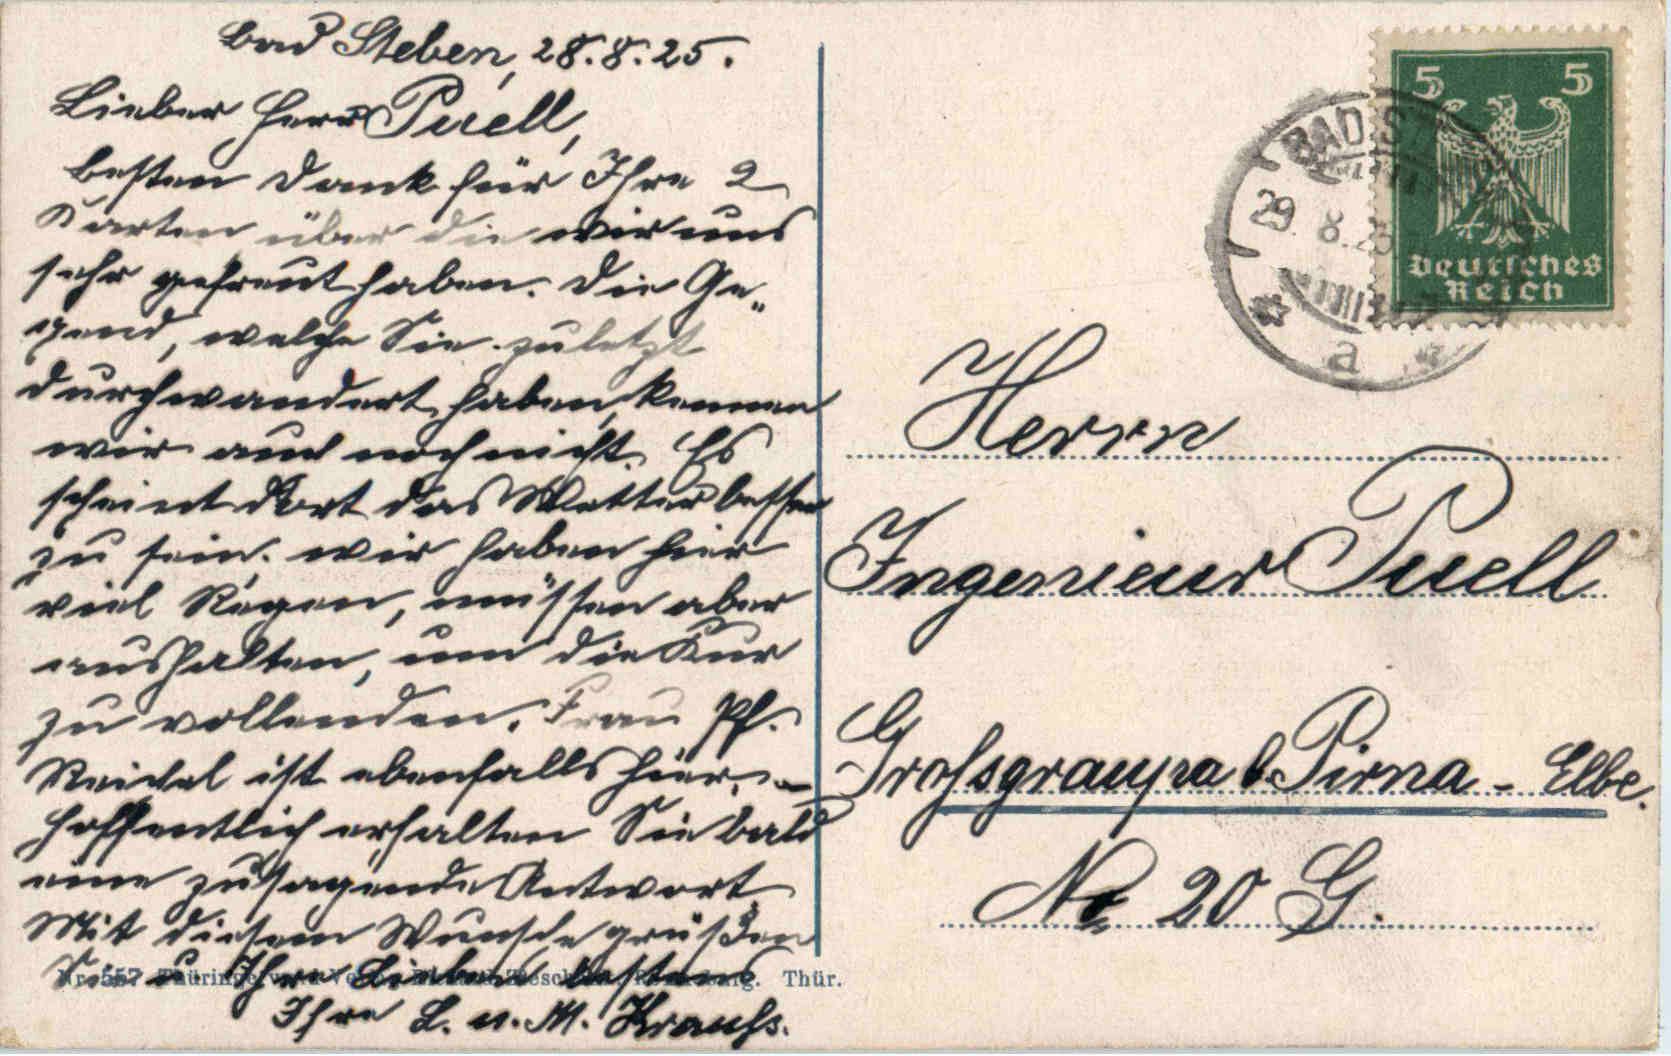 Bad Steben, 28.8.25.
Lieber Herr Puell,
besten Dank für Ihre 2
Karten über die wir uns
sehr gefreut haben. Die Ge-
gend, welche Sie zuletzt
durchwandert haben, kennen
wir auch noch nicht. Es
scheint dort das Wetter besser
zu sein. Wir haben hier
viel Regen, müssen aber
aushalten, um die Kur
zu vollenden. Frau Pf.
Reichel ist ebenfalls hier. –
Hoffentlich erhalten Sie bald
eine zusagende Antwort
Mit diesem Wunsche grüßen
Sie u. Ihre Lieben bestens
Ihre L. u. M. Krauß.
Nr. 557 Thür.
5 5
Deutsches
Reich
BAD ST
29. 8. 25
a
Herrn
Ingenieur Puell
Großgraupa b. Pirna - Elbe.
No 20 G.